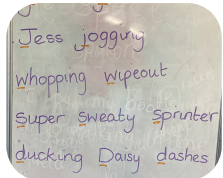 Jess jogging
whopping wipeout
super sweaty sprinter
ducking Daisy dashes